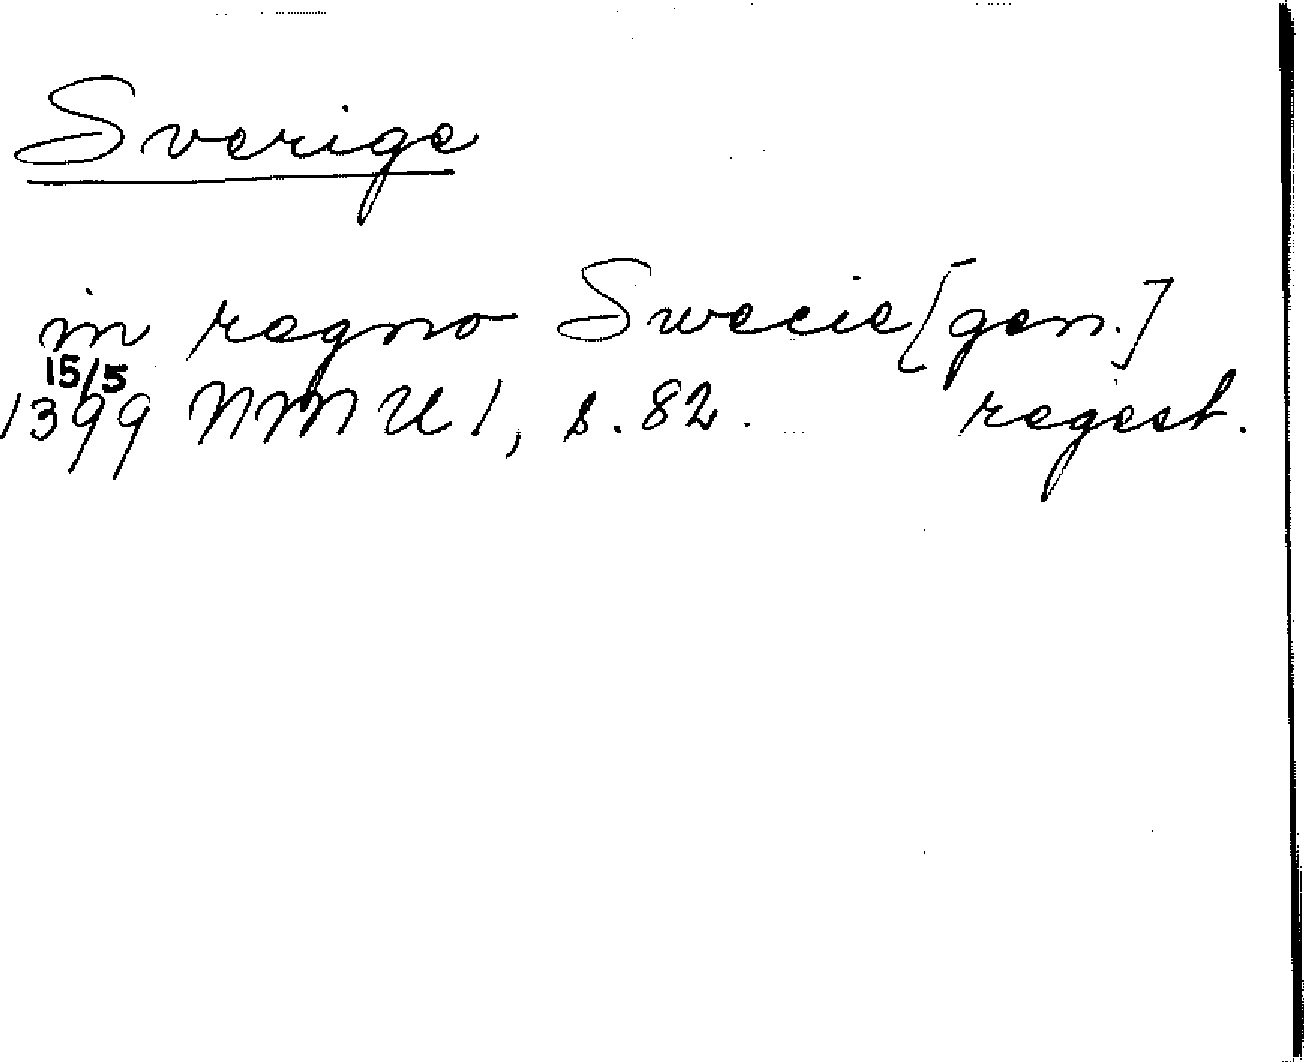 Sverige
in regno Swecie [gen.]
15/5
1399 NMU 1, s. 82. regest.